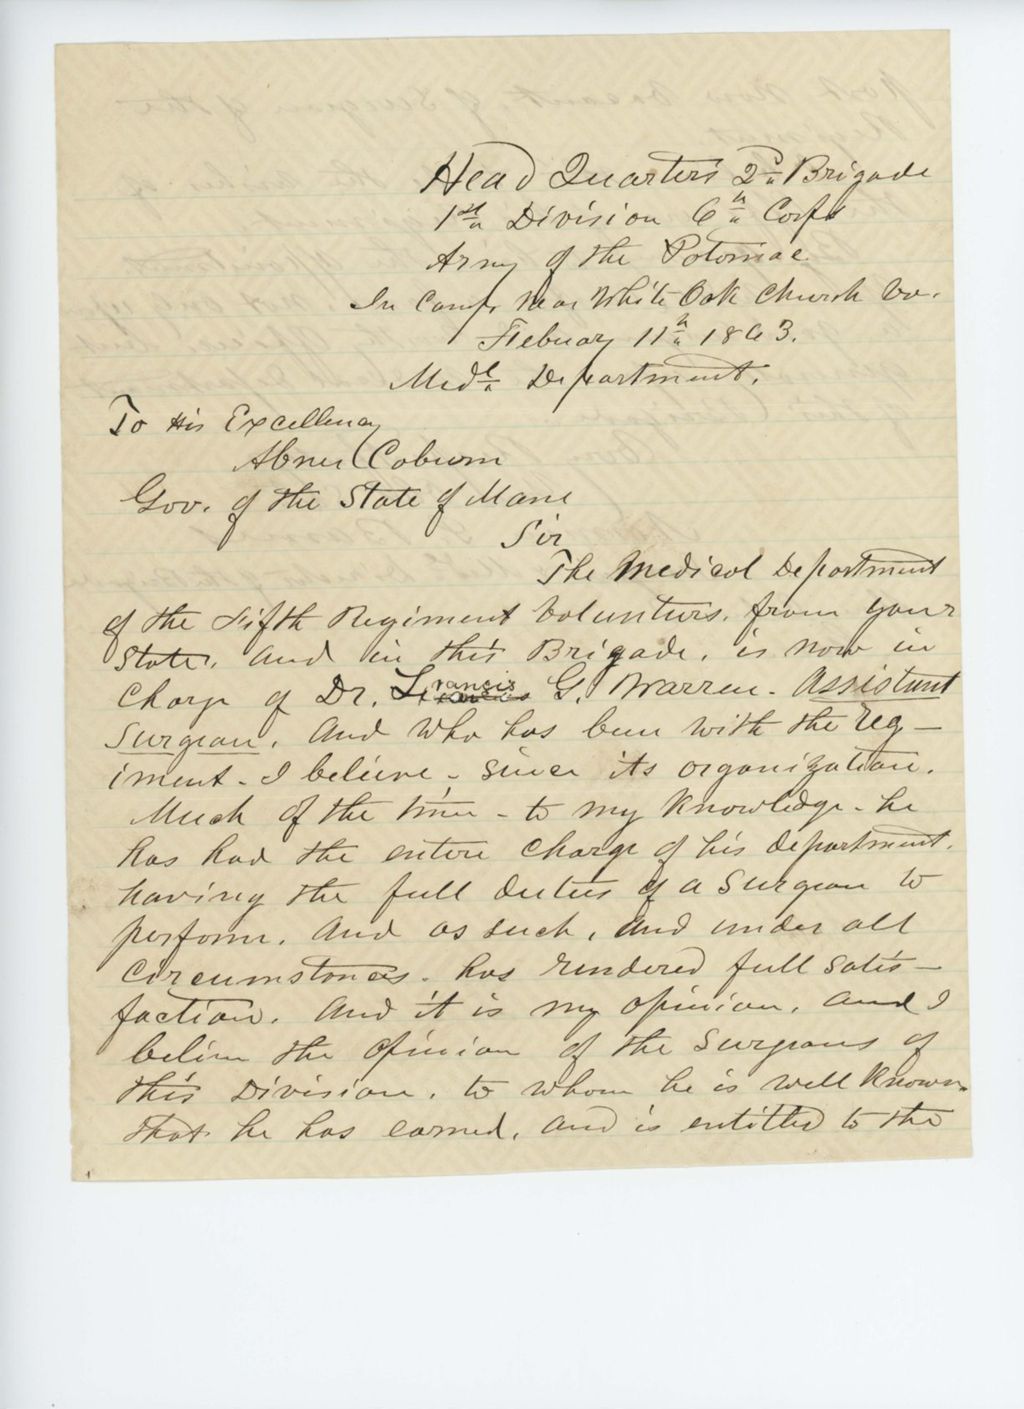 Head Quarters 2d Brigade
1st Division 6th Corps
Army of the Potomac
In Camp, near White Oak Church Va.
Febuary 11th 1863.
Medl Department.
To His Excellency
Abner Coburn
Gov. of the State of Maine
Sir
The Medical Department
of the Fifth Regiment Volunteers, from your
State, and in this Brigade, is now in
charge of Dr. Francis G. Warren - Assistant
Surgeon, and who has been with the reg-
iment - I believe - since its organization.
Much of the time - to my knowledge - he
has had the entire charge of his department,
having the full duties of a Surgeon to
perform, and as such, and under all
circumstances - has rendered full satis-
faction. And it is my opinion, and I
believe the opinion of the Surgeons of
this Division, to whom he is well known
that he has earned, and is entitled to the